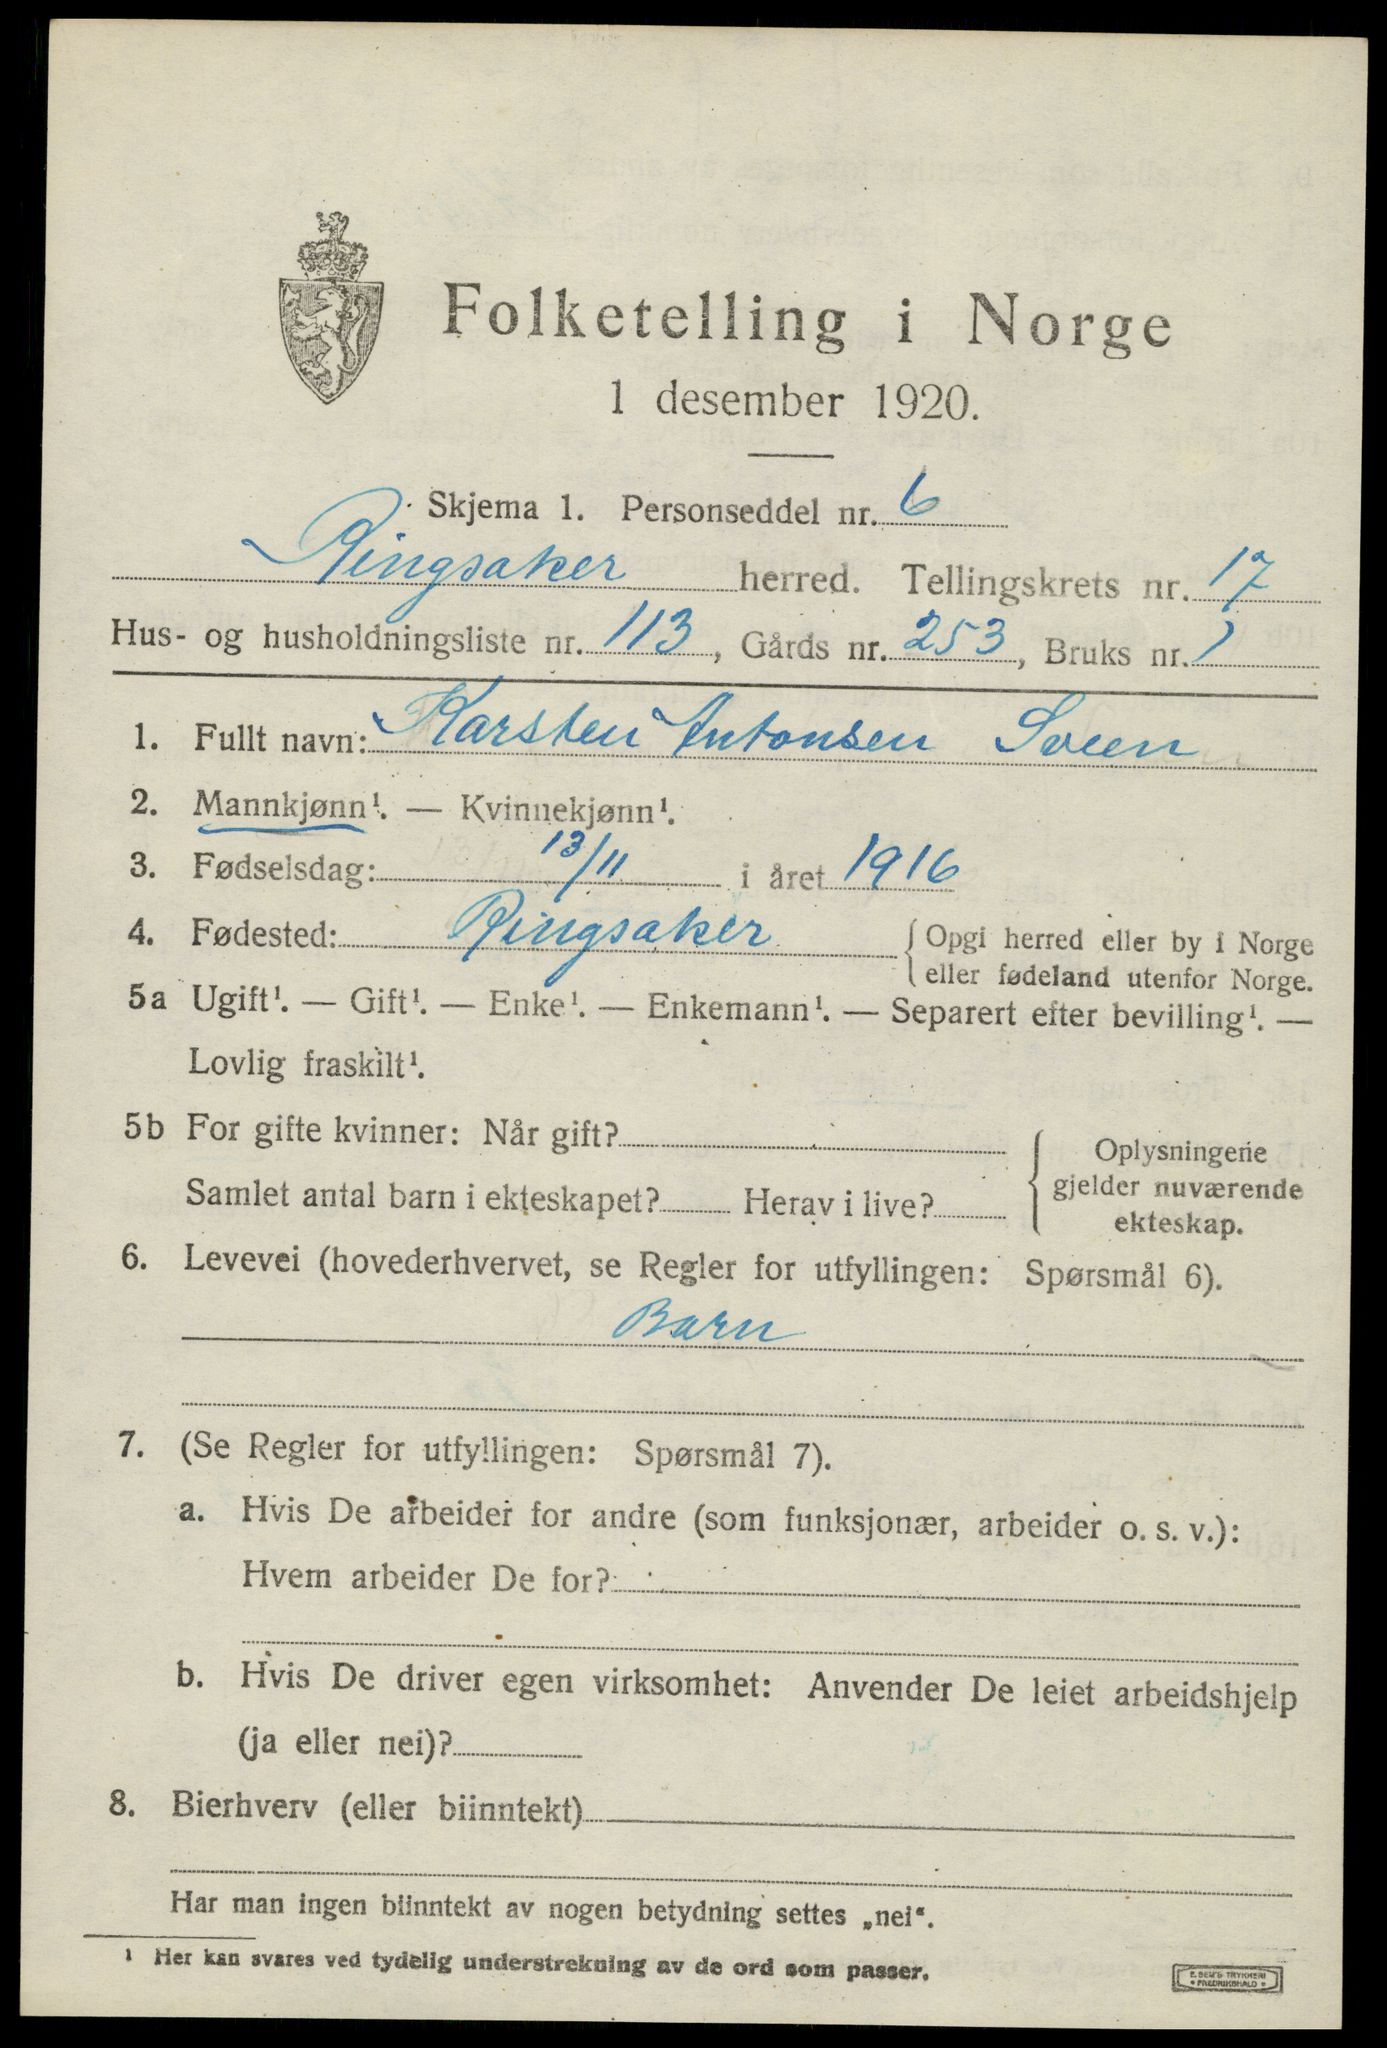 Folketelling i Norge
1 desember 1920.
Skjema 1. Personseddel nr. 6
Ringsaker herred. Tellingskrets nr. 17
Hus- og husholdningsliste nr. 113, Gårds nr. 253, Bruks nr. 1
1. Fullt navn: Karsten Antonsen Sveen
2. Mannkjønn¹. — Kvinnekjønn¹.
3. Fødselsdag: 13/11 i året 1916
4. Fødested: Ringsaker { Opgi herred eller by i Norge
eller fødeland utenfor Norge.
5a Ugift¹. — Gift¹. — Enke¹. — Enkemann¹. — Separert efter bevilling¹. —
Lovlig fraskilt¹.
5b For gifte kvinner: Når gift?
Samlet antal barn i ekteskapet? Herav i live?
{ Oplysningene
gjelder nuværende
ekteskap.
6. Levevei (hovederhvervet, se Regler for utfyllingen: Spørsmål 6).
Barn
7. (Se Regler for utfyllingen: Spørsmål 7).
a. Hvis De arbeider for andre (som funksjonær, arbeider o. s. v.):
Hvem arbeider De for?
b. Hvis De driver egen virksomhet: Anvender De leiet arbeidshjelp
(ja eller nei)?
8. Bierhverv (eller biinntekt)
Har man ingen biinntekt av nogen betydning settes „nei“.
¹ Her kan svares ved tydelig understrekning av de ord som passer.
E. SEM'S TRYKKERI
• FREDRIKSHALD •